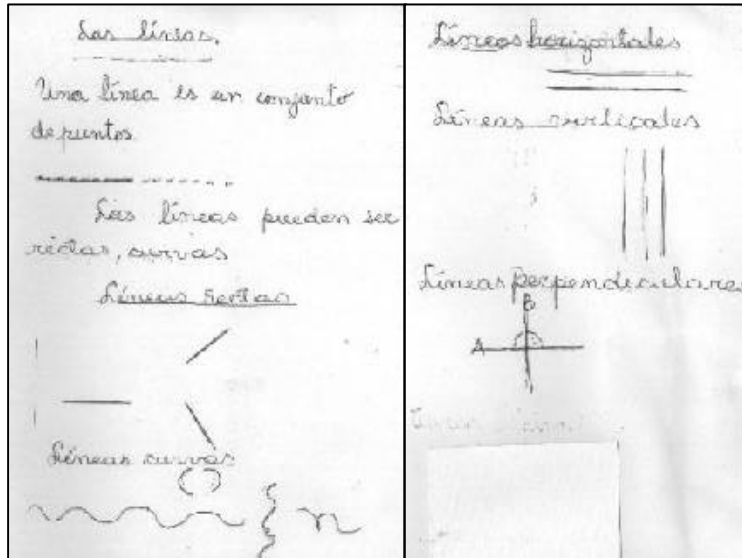 Las líneas.
Una línea es un conjunto
de puntos
Las líneas pueden ser
rectas, curvas
Líneas rectas
Líneas curvas
Líneas horizontales
Líneas verticales
Líneas perpendiculares
B
A